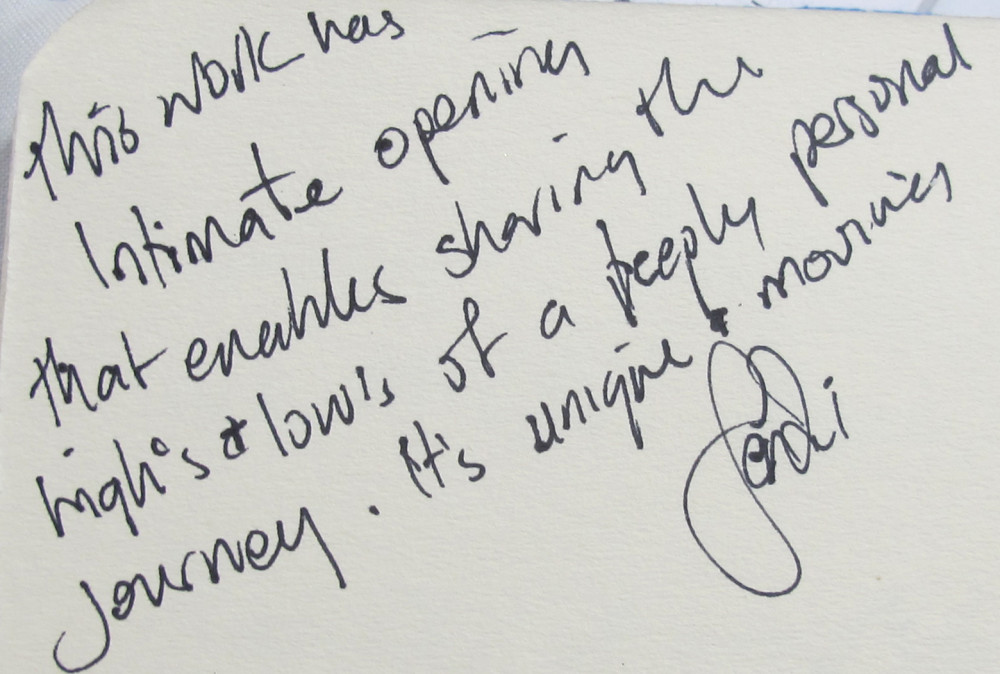 this work has
Intimate opening
that enables sharing the
high's & low's of a deeply personal
journey. It's unique & moving